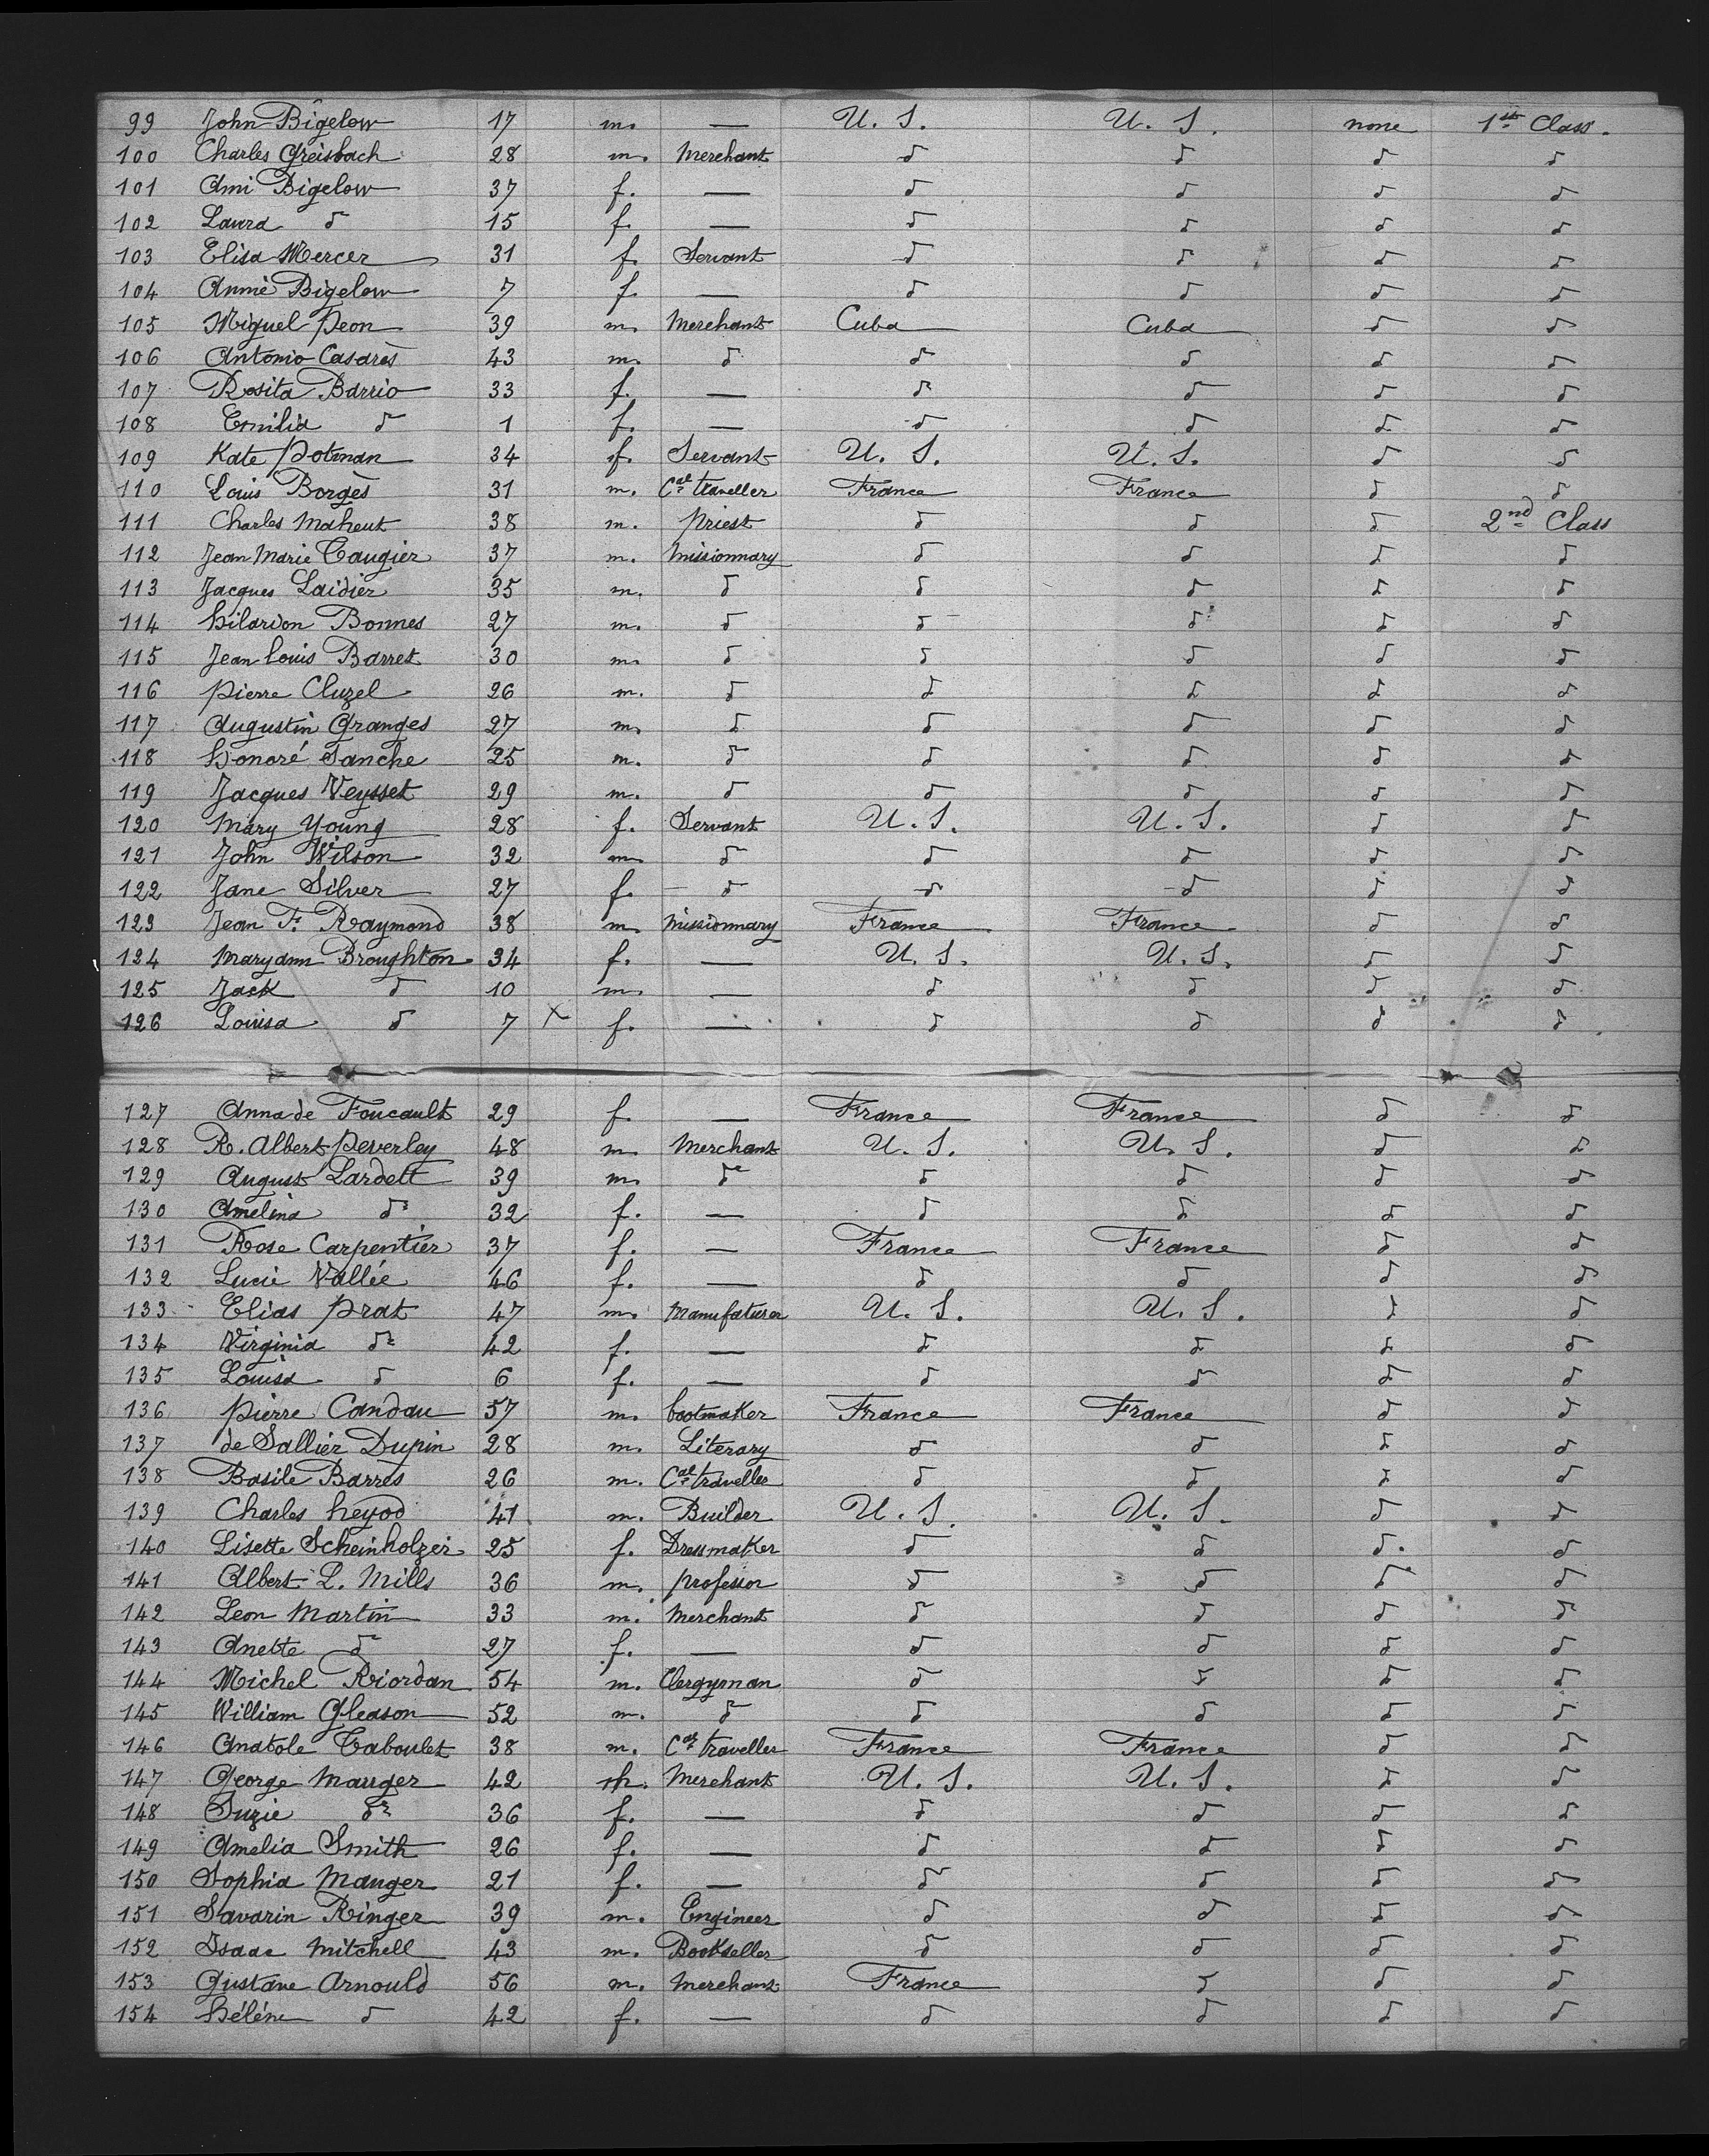 99 John Bigelow 17 m. — U. S. U. S. none 1st Class.
100 Charles Greisbach 28 m. Merchant d d d d
101 Ami Bigelow 37 f. — d d d d
102 Laura d 15 f. — d d d d
103 Elisa Mercer 31 f. Servant d d d d
104 Annie Bigelow 7 f. — d d d d
105 Miguel Peon 39 m. Merchant Cuba Cuba d d
106 Antonio Casarès 43 m. d d d d d
107 Rosita Barrio 33 f. — d d d d
108 Emilia d 1 f. — d d d d
109 Kate Potman 34 f. Servant U. S. U. S. d d
110 Louis Borgès 31 m. Cal traveller France France d d
111 Charles Maheut 38 m. priest d d d 2nd Class
112 Jean Marie Caugier 37 m. missionnary d d d d
113 Jacques Laidier 35 m. d d d d d
114 hilarion Bonnes 27 m. d d d d d
115 Jean Louis Barret 30 m. d d d d d
116 pierre Cluzel 26 m. d d d d d
117 Augustin Granges 27 m. d d d d d
118 honoré Sanche 25 m. d d d d d
119 Jacques Veysset 29 m. d d d d d
120 Mary Young 28 f. Servant U. S. U. S. d d
121 John Wilson 32 m. d d d d d
122 Jane Silver 27 f. d d d d d
123 Jean F. Raymond 38 m. missionnary France France d d
124 Maryann Broughton 34 f. — U. S. U. S. d d
125 Jack d 10 m. — d d d d
126 Louisa d 7 X f. — d d d d
127 Anna de Foucault 29 f. — France France d d
128 R. Albert peverley 48 m. Merchant U. S. U. S. d d
129 August Lardett 39 m. d d d d d
130 Amelina d 32 f. — d d d d
131 Rose Carpentier 37 f. — France France d d
132 Lucie Vallée 46 f. — d d d d
133 Elias prat 47 m. Manufaturer U. S. U. S. d d
134 Virginia d 42 f. — d d d d
135 Louisa d 6 f. — d d d d
136 pierre Candau 57 m. bootmaker France France d d
137 de Sallier Dupin 28 m. Literary d d d d
138 Basile Barrès 26 m. Cal traveller d d d d
139 Charles heyod 41 m. Builder U. S. U. S. d d
140 Lisette Scheinholzer 25 f. Dressmaker d d d d
141 Albert L. Mills 36 m. professor d d d d
142 Leon Martin 33 m. Merchant d d d d
143 Anette d 27 f. — d d d d
144 Michel Riordan 54 m. Clergyman d d d d
145 William Gleason 52 m. d d d d d
146 Anatole Taboulet 38 m. Cal traveller France France d d
147 George Mauger 42 m. Merchant U. S. U. S. d d
148 Suzie d 36 f. — d d d d
149 Amelia Smith 26 f. — d d d d
150 Sophia Mauger 21 f. — d d d d
151 Savarin Ringer 39 m. Engineer d d d d
152 Isaac Mitchell 43 m. Bookseller d d d d
153 Gustave Arnould 56 m. Merchant France d d d
154 hélène d 42 f. — d d d d